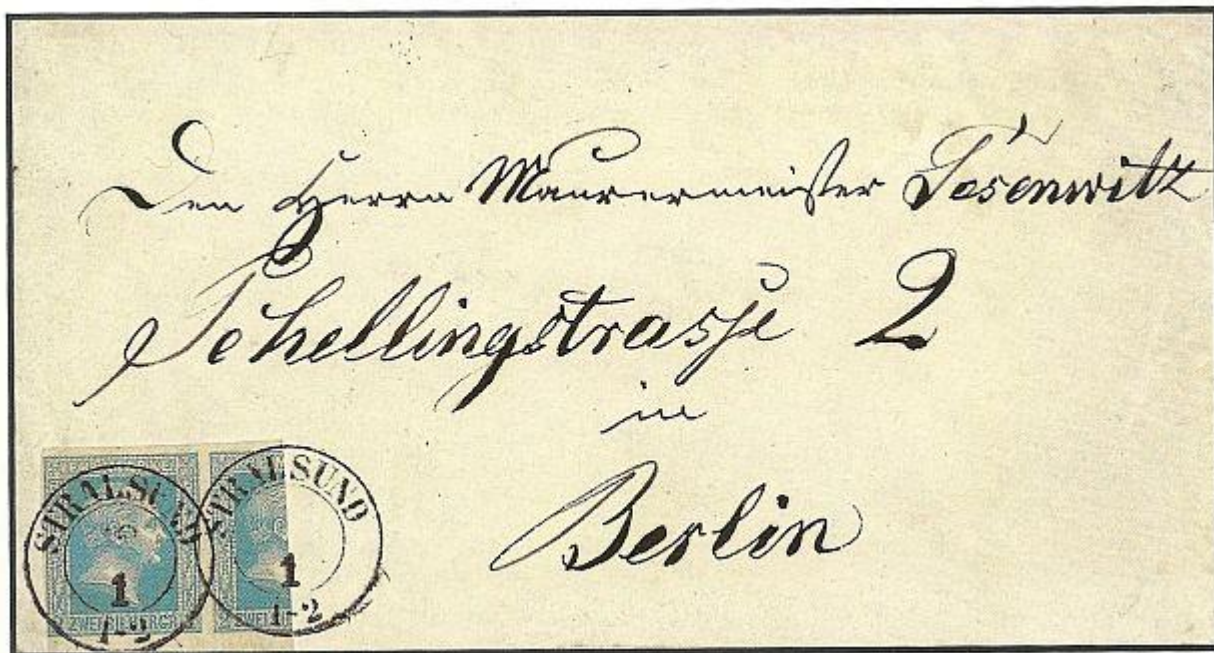 Den Herrn Maurermeister
Schellingstrasse 2
in
Berlin
STRALSUND
1
1-2
STRALSUND
1
1-2
2 ZWEI SILBERGR.
2 ZWEI